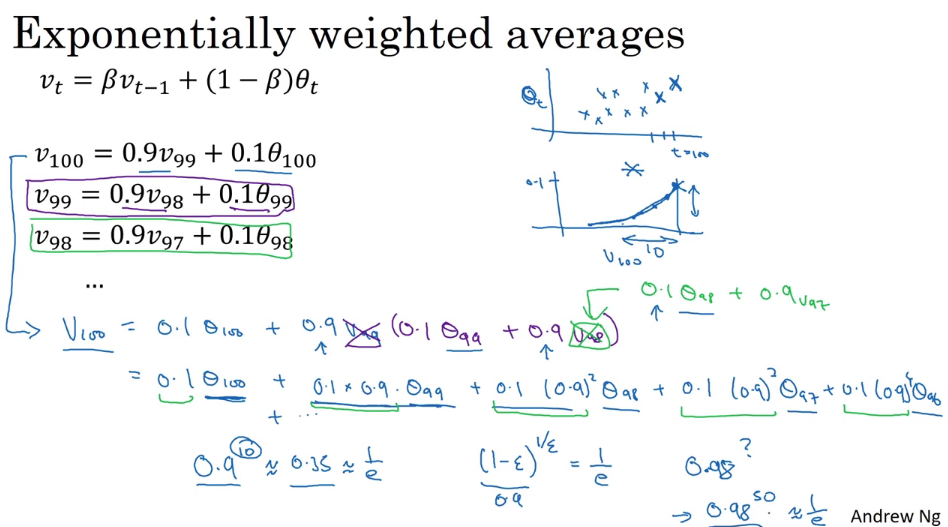 Exponentially weighted averages
v_t = βv_{t−1} + (1 − β)θ_t
v_100 = 0.9v_99 + 0.1θ_100
v_99 = 0.9v_98 + 0.1θ_99
v_98 = 0.9v_97 + 0.1θ_98
...
θ_t
t=100
0.1
V_100
10
0.1 θ_98 + 0.9 v_97
V_100 = 0.1 θ_100 + 0.9 v_99 (0.1 θ_99 + 0.9 v_98)
= 0.1 θ_100 + 0.1 × 0.9 · θ_99 + 0.1 (0.9)² θ_98 + 0.1 (0.9)³ θ_97 + 0.1 (0.9)⁴ θ_96
+ ...
0.9^10 ≈ 0.35 ≈ 1/e
(1-ε)^{1/ε} = 1/e
0.9
0.98^?
→ 0.98^50 ≈ 1/e
Andrew Ng